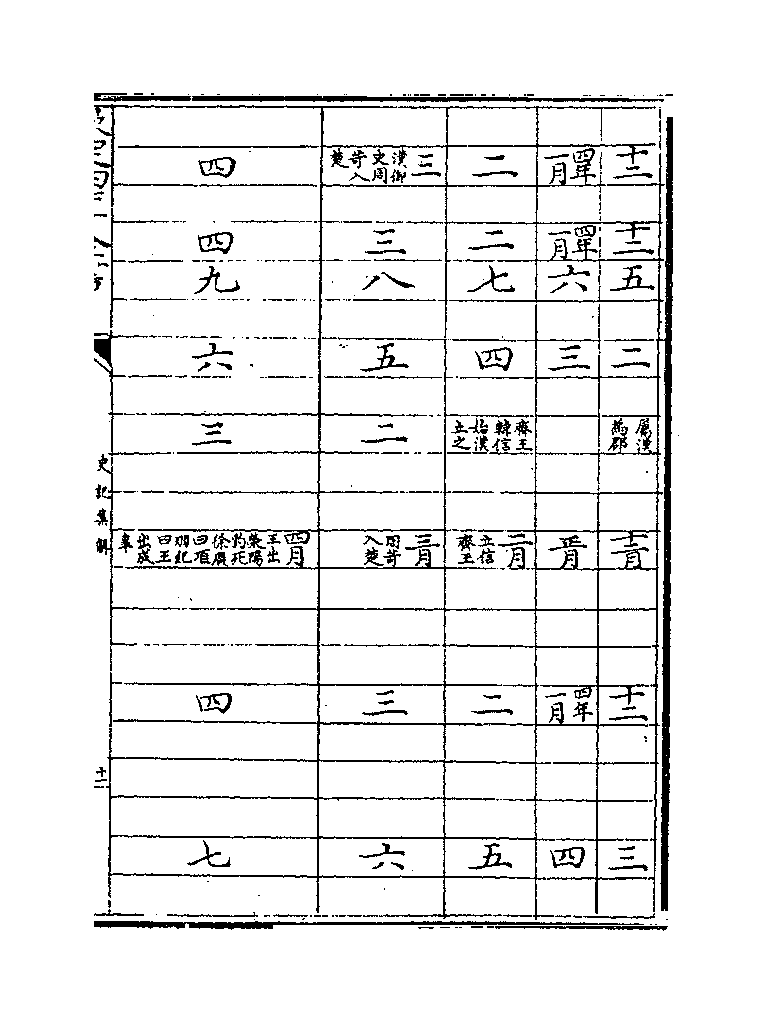 十二
十二
五
二
屬漢
為郡
十二月
十二
三
四年
一月
四年
一月
六
三
正月
四年
一月
四
二
二
七
四
齊王
韓信
始漢
立之
二月
立信
齊王
二
五
三
漢御
史周
苛入
楚
三
八
五
二
三月
周苛
入楚
三
六
四
四
九
六
三
四月
王出
榮陽
豹死
徐廣
曰項
羽紀
曰王
出成
臯
四
七
史記集解
十二